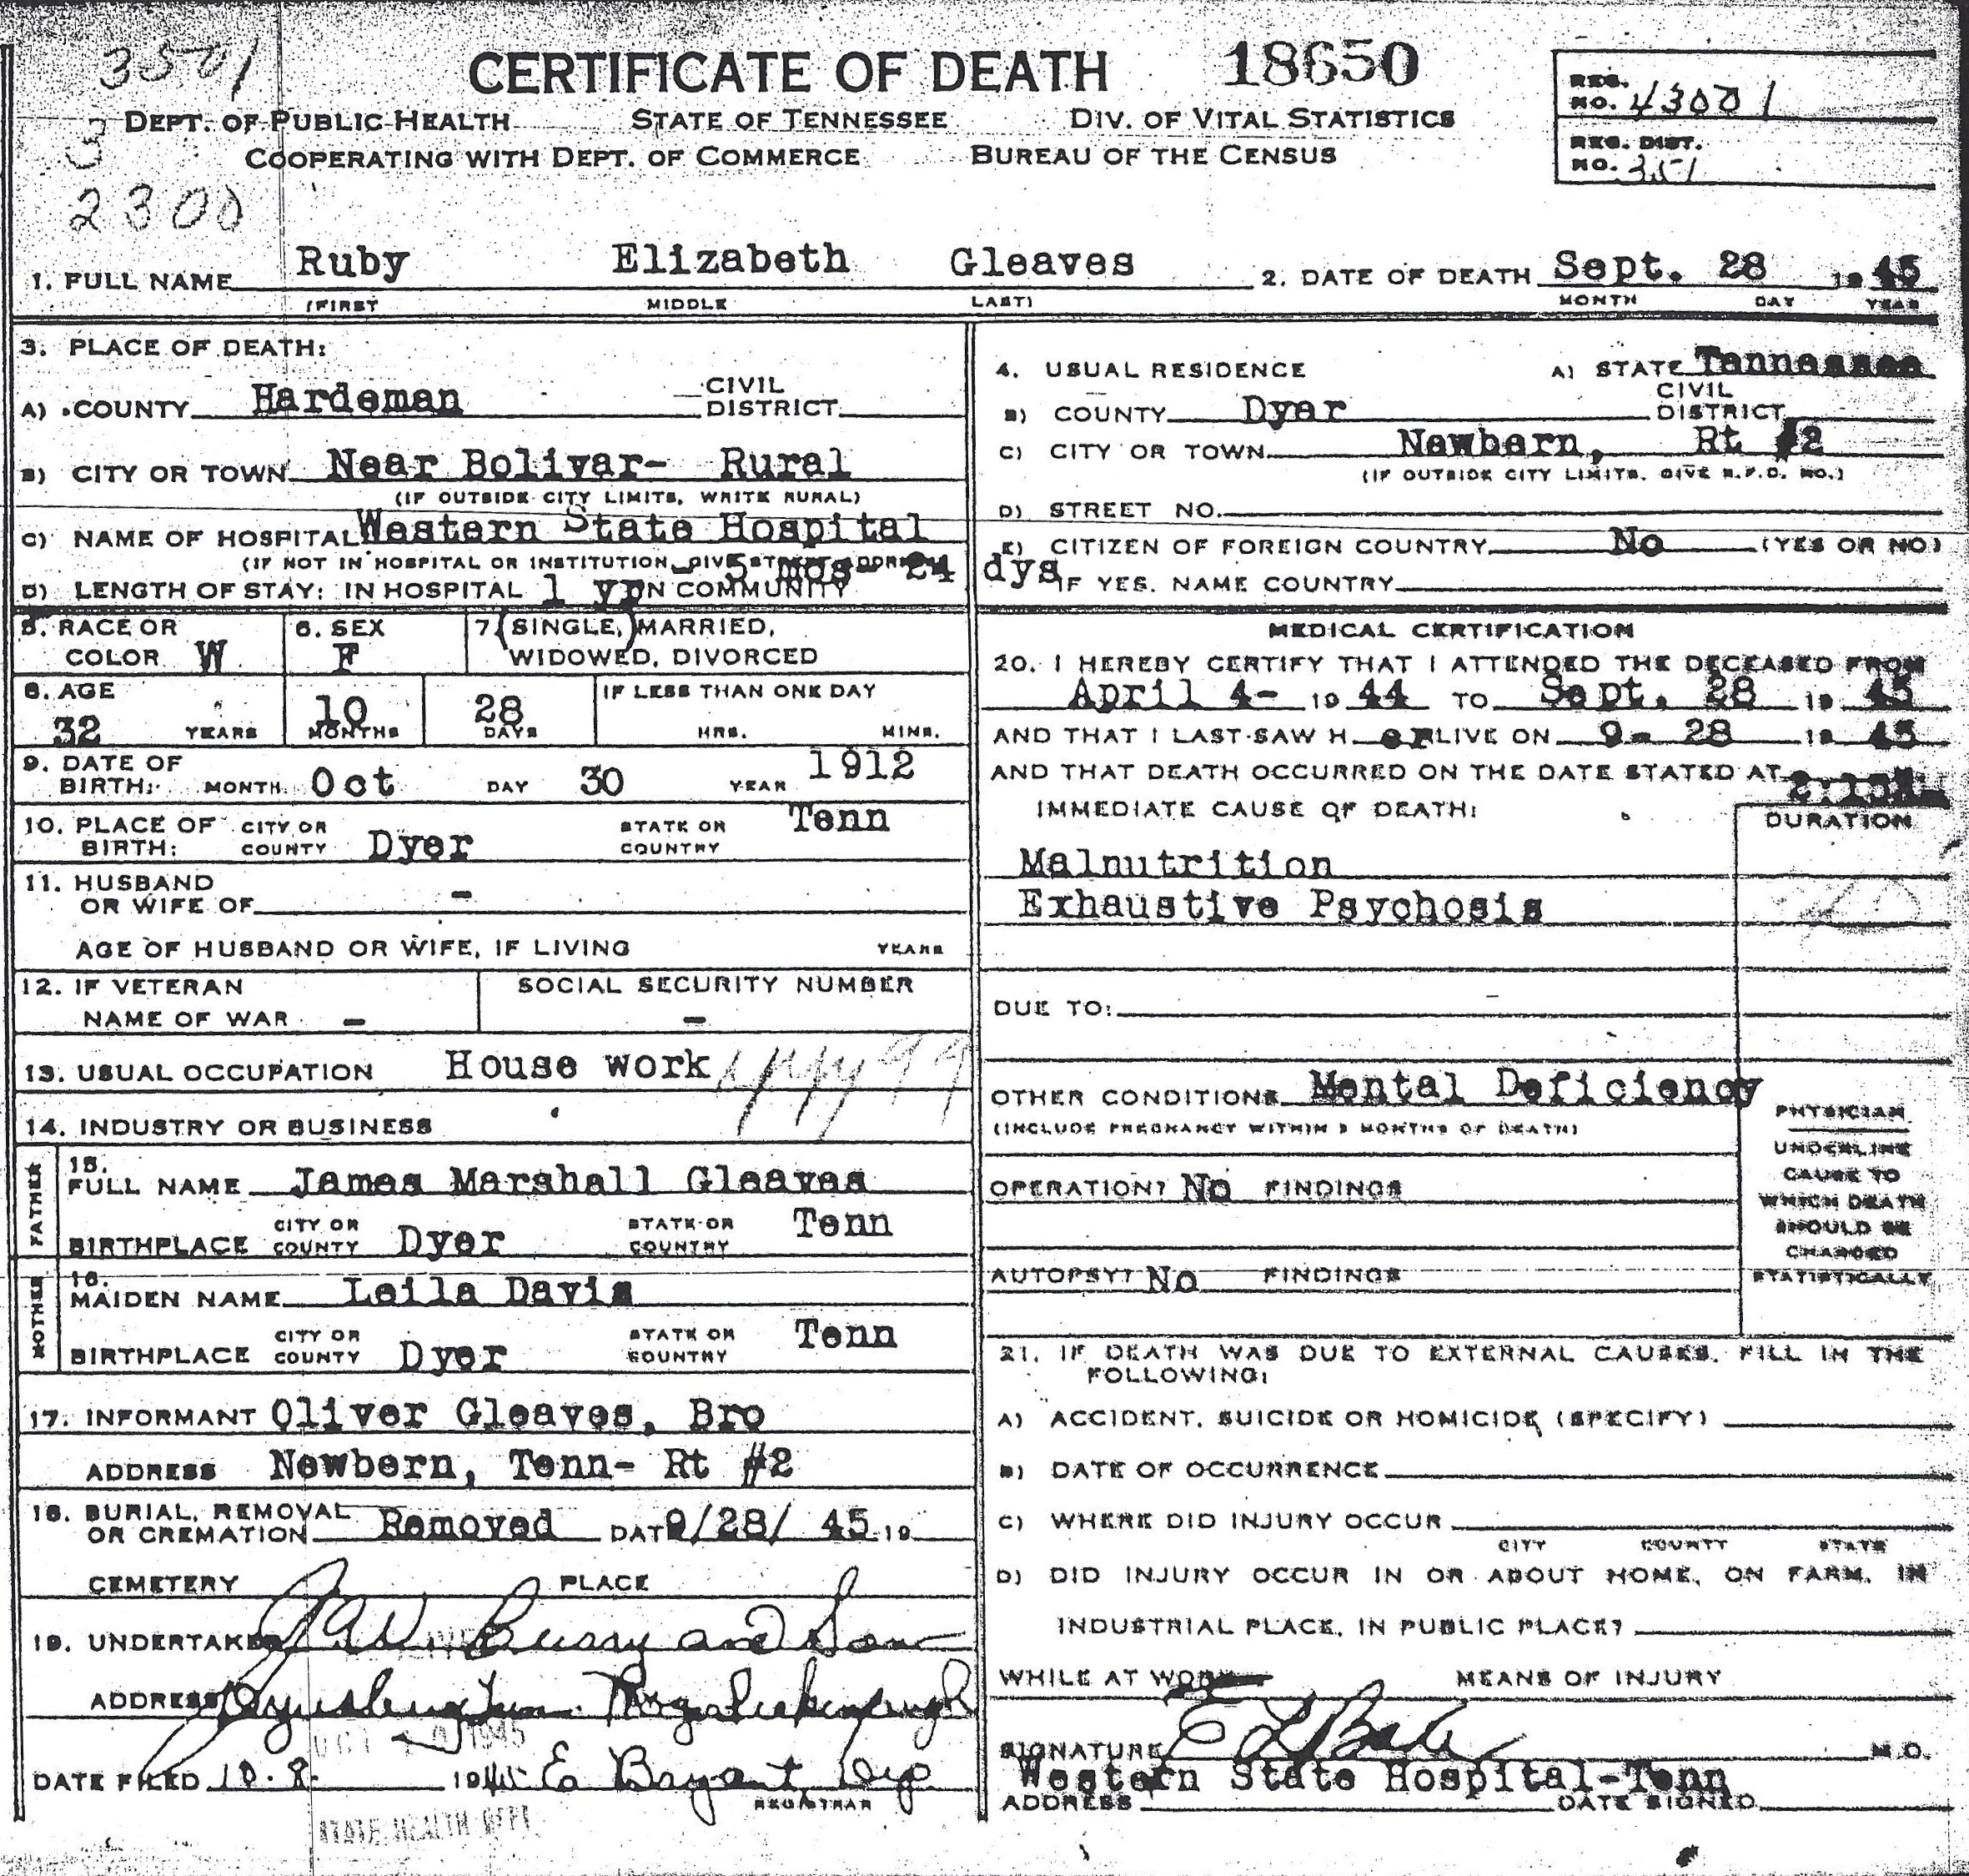 3501
CERTIFICATE OF DEATH 18650
REG. NO. 43001
DEPT. OF PUBLIC HEALTH STATE OF TENNESSEE DIV. OF VITAL STATISTICS
3
COOPERATING WITH DEPT. OF COMMERCE BUREAU OF THE CENSUS
REG. DIST. NO. 351
2300
1. FULL NAME Ruby Elizabeth Gleaves 2. DATE OF DEATH Sept. 28 1945
(FIRST MIDDLE LAST) MONTH DAY YEAR
3. PLACE OF DEATH:
A) COUNTY Hardeman CIVIL DISTRICT
B) CITY OR TOWN Near Bolivar- Rural
(IF OUTSIDE CITY LIMITS, WRITE RURAL)
C) NAME OF HOSPITAL Western State Hospital
(IF NOT IN HOSPITAL OR INSTITUTION, GIVE STREET ADDRESS)
D) LENGTH OF STAY: IN HOSPITAL 1 yr 5 mos- 24 dys IN COMMUNITY
4. USUAL RESIDENCE A) STATE Tennessee
B) COUNTY Dyer CIVIL DISTRICT
C) CITY OR TOWN Newbern, Rt #2
(IF OUTSIDE CITY LIMITS, GIVE R.F.D. NO.)
D) STREET NO.
E) CITIZEN OF FOREIGN COUNTRY No (YES OR NO)
IF YES, NAME COUNTRY
5. RACE OR COLOR W 6. SEX F 7. SINGLE, MARRIED,
WIDOWED, DIVORCED
8. AGE 32 YEARS 10 MONTHS 28 DAYS IF LESS THAN ONE DAY
HRS. MINS.
9. DATE OF BIRTH: MONTH Oct DAY 30 YEAR 1912
10. PLACE OF BIRTH: CITY OR COUNTY Dyer STATE OR COUNTRY Tenn
11. HUSBAND OR WIFE OF -
AGE OF HUSBAND OR WIFE, IF LIVING YEARS
12. IF VETERAN NAME OF WAR - SOCIAL SECURITY NUMBER -
13. USUAL OCCUPATION House work
14. INDUSTRY OR BUSINESS
FATHER
15. FULL NAME James Marshall Gleaves
BIRTHPLACE CITY OR COUNTY Dyer STATE OR COUNTRY Tenn
MOTHER
16. MAIDEN NAME Leila Davis
BIRTHPLACE CITY OR COUNTY Dyer STATE OR COUNTRY Tenn
17. INFORMANT Oliver Gleaves, Bro
ADDRESS Newbern, Tenn- Rt #2
18. BURIAL, REMOVAL OR CREMATION Removed DATE 9/28/ 45 19
CEMETERY PLACE
19. UNDERTAKER J.W. Curry and Son
ADDRESS Dyersburg Tenn.
OCT 1945
DATE FILED 10.8. 1945 E Bryant, Dep
REGISTRAR
STATE HEALTH DEPT.
MEDICAL CERTIFICATION
20. I HEREBY CERTIFY THAT I ATTENDED THE DECEASED FROM
April 4- 19 44 TO Sept. 28 19 45
AND THAT I LAST SAW H er ALIVE ON 9- 28 19 45
AND THAT DEATH OCCURRED ON THE DATE STATED AT
IMMEDIATE CAUSE OF DEATH: DURATION
Malnutrition
Exhaustive Psychosis
DUE TO:
OTHER CONDITIONS Mental Deficiency
(INCLUDE PREGNANCY WITHIN 3 MONTHS OF DEATH)
OPERATION? No FINDINGS
AUTOPSY? No FINDINGS
PHYSICIAN
UNDERLINE
CAUSE TO
WHICH DEATH
SHOULD BE
CHARGED
STATISTICALLY
21. IF DEATH WAS DUE TO EXTERNAL CAUSES, FILL IN THE
FOLLOWING:
A) ACCIDENT, SUICIDE OR HOMICIDE (SPECIFY)
B) DATE OF OCCURRENCE
C) WHERE DID INJURY OCCUR
CITY COUNTY STATE
D) DID INJURY OCCUR IN OR ABOUT HOME, ON FARM, IN
INDUSTRIAL PLACE, IN PUBLIC PLACE?
WHILE AT WORK MEANS OF INJURY
SIGNATURE E L Bate M.D.
Western State Hospital-Tenn
ADDRESS DATE SIGNED